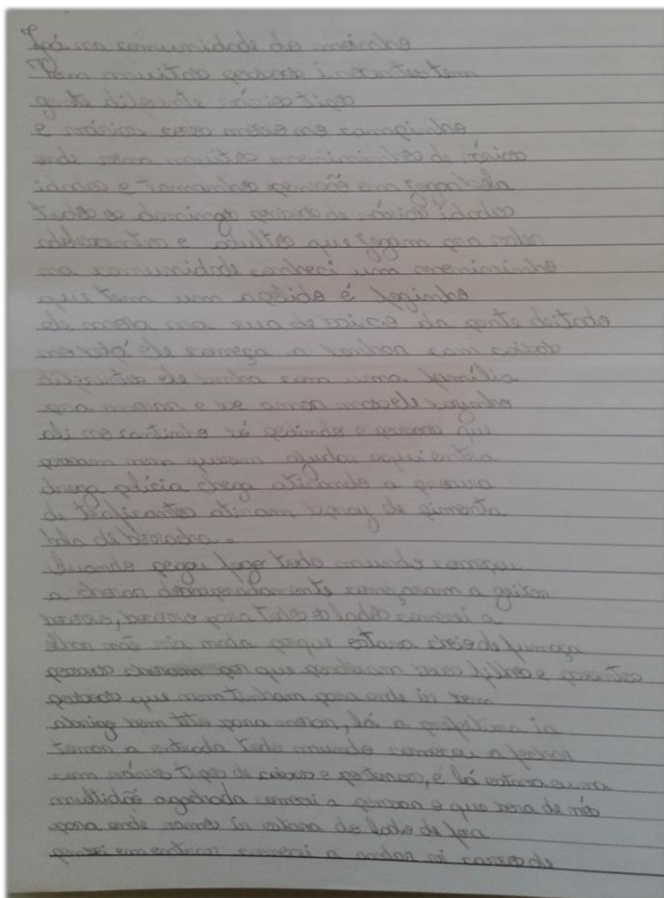 Lá na comunidade do moinho
Tem muitas pessoas inocentes tem
gente diferente vários tipos
e música
onde vem muitos menininhos de vários
idades e tamanhos
todos os domingo pessoas de vários idades
adolescentes e adultos que jogam pra valer
na comunidade conheci um menininho
que tem um apelido é foginho
ele mora na rua debaixo da ponte deitado
ele começa a sonhar com coisas
diferentes ele sonha com uma família
pra morar e se amar
ali no cantinho só pedindo e pessoas que
passam nem querem ajudar aqui entra
droga polícia chega atirando a procura
de traficantes atiram espray de pimenta
bala de borracha.
Quando pegou fogo todo mundo começou
a chorar desesperadamente começaram a gritar
socorro, socorro para todos os lados comecei a
olhar não via nada porque estava cheio de fumaça
pessoas choravam por que perderam seus filhos e parentes
pessoas que nem tinham para onde ir sem
abrigo sem teto para morar, lá a prefeitura ia
tomar a entrada todo mundo começou a fechar
com vários tipos de caixas e pertences, e lá estava eu na
multidão agachada comecei a pensar o que sera de nós
para onde vamos ir estava do lado de fora
pensei em entrar comecei a andar vi carros de